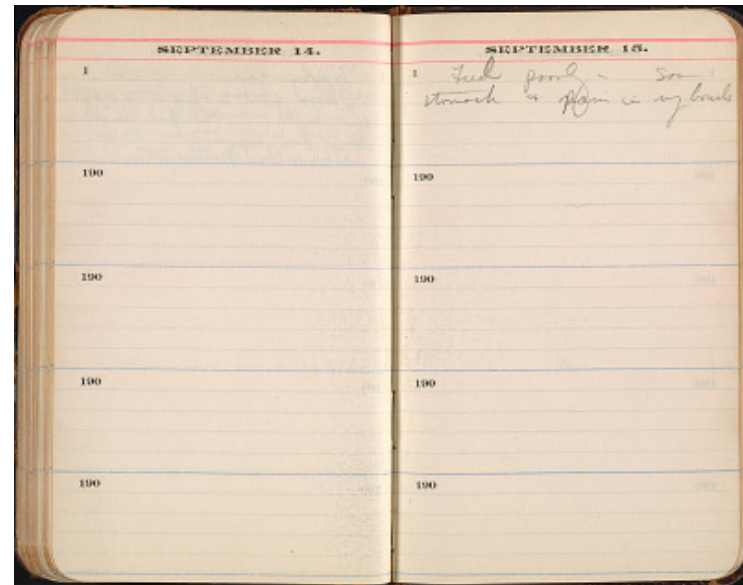 SEPTEMBER 14.
1
190
190
190
190
SEPTEMBER 15.
1 Feel poorly - Sour
stomach & pain in my bowels
190
190
190
190